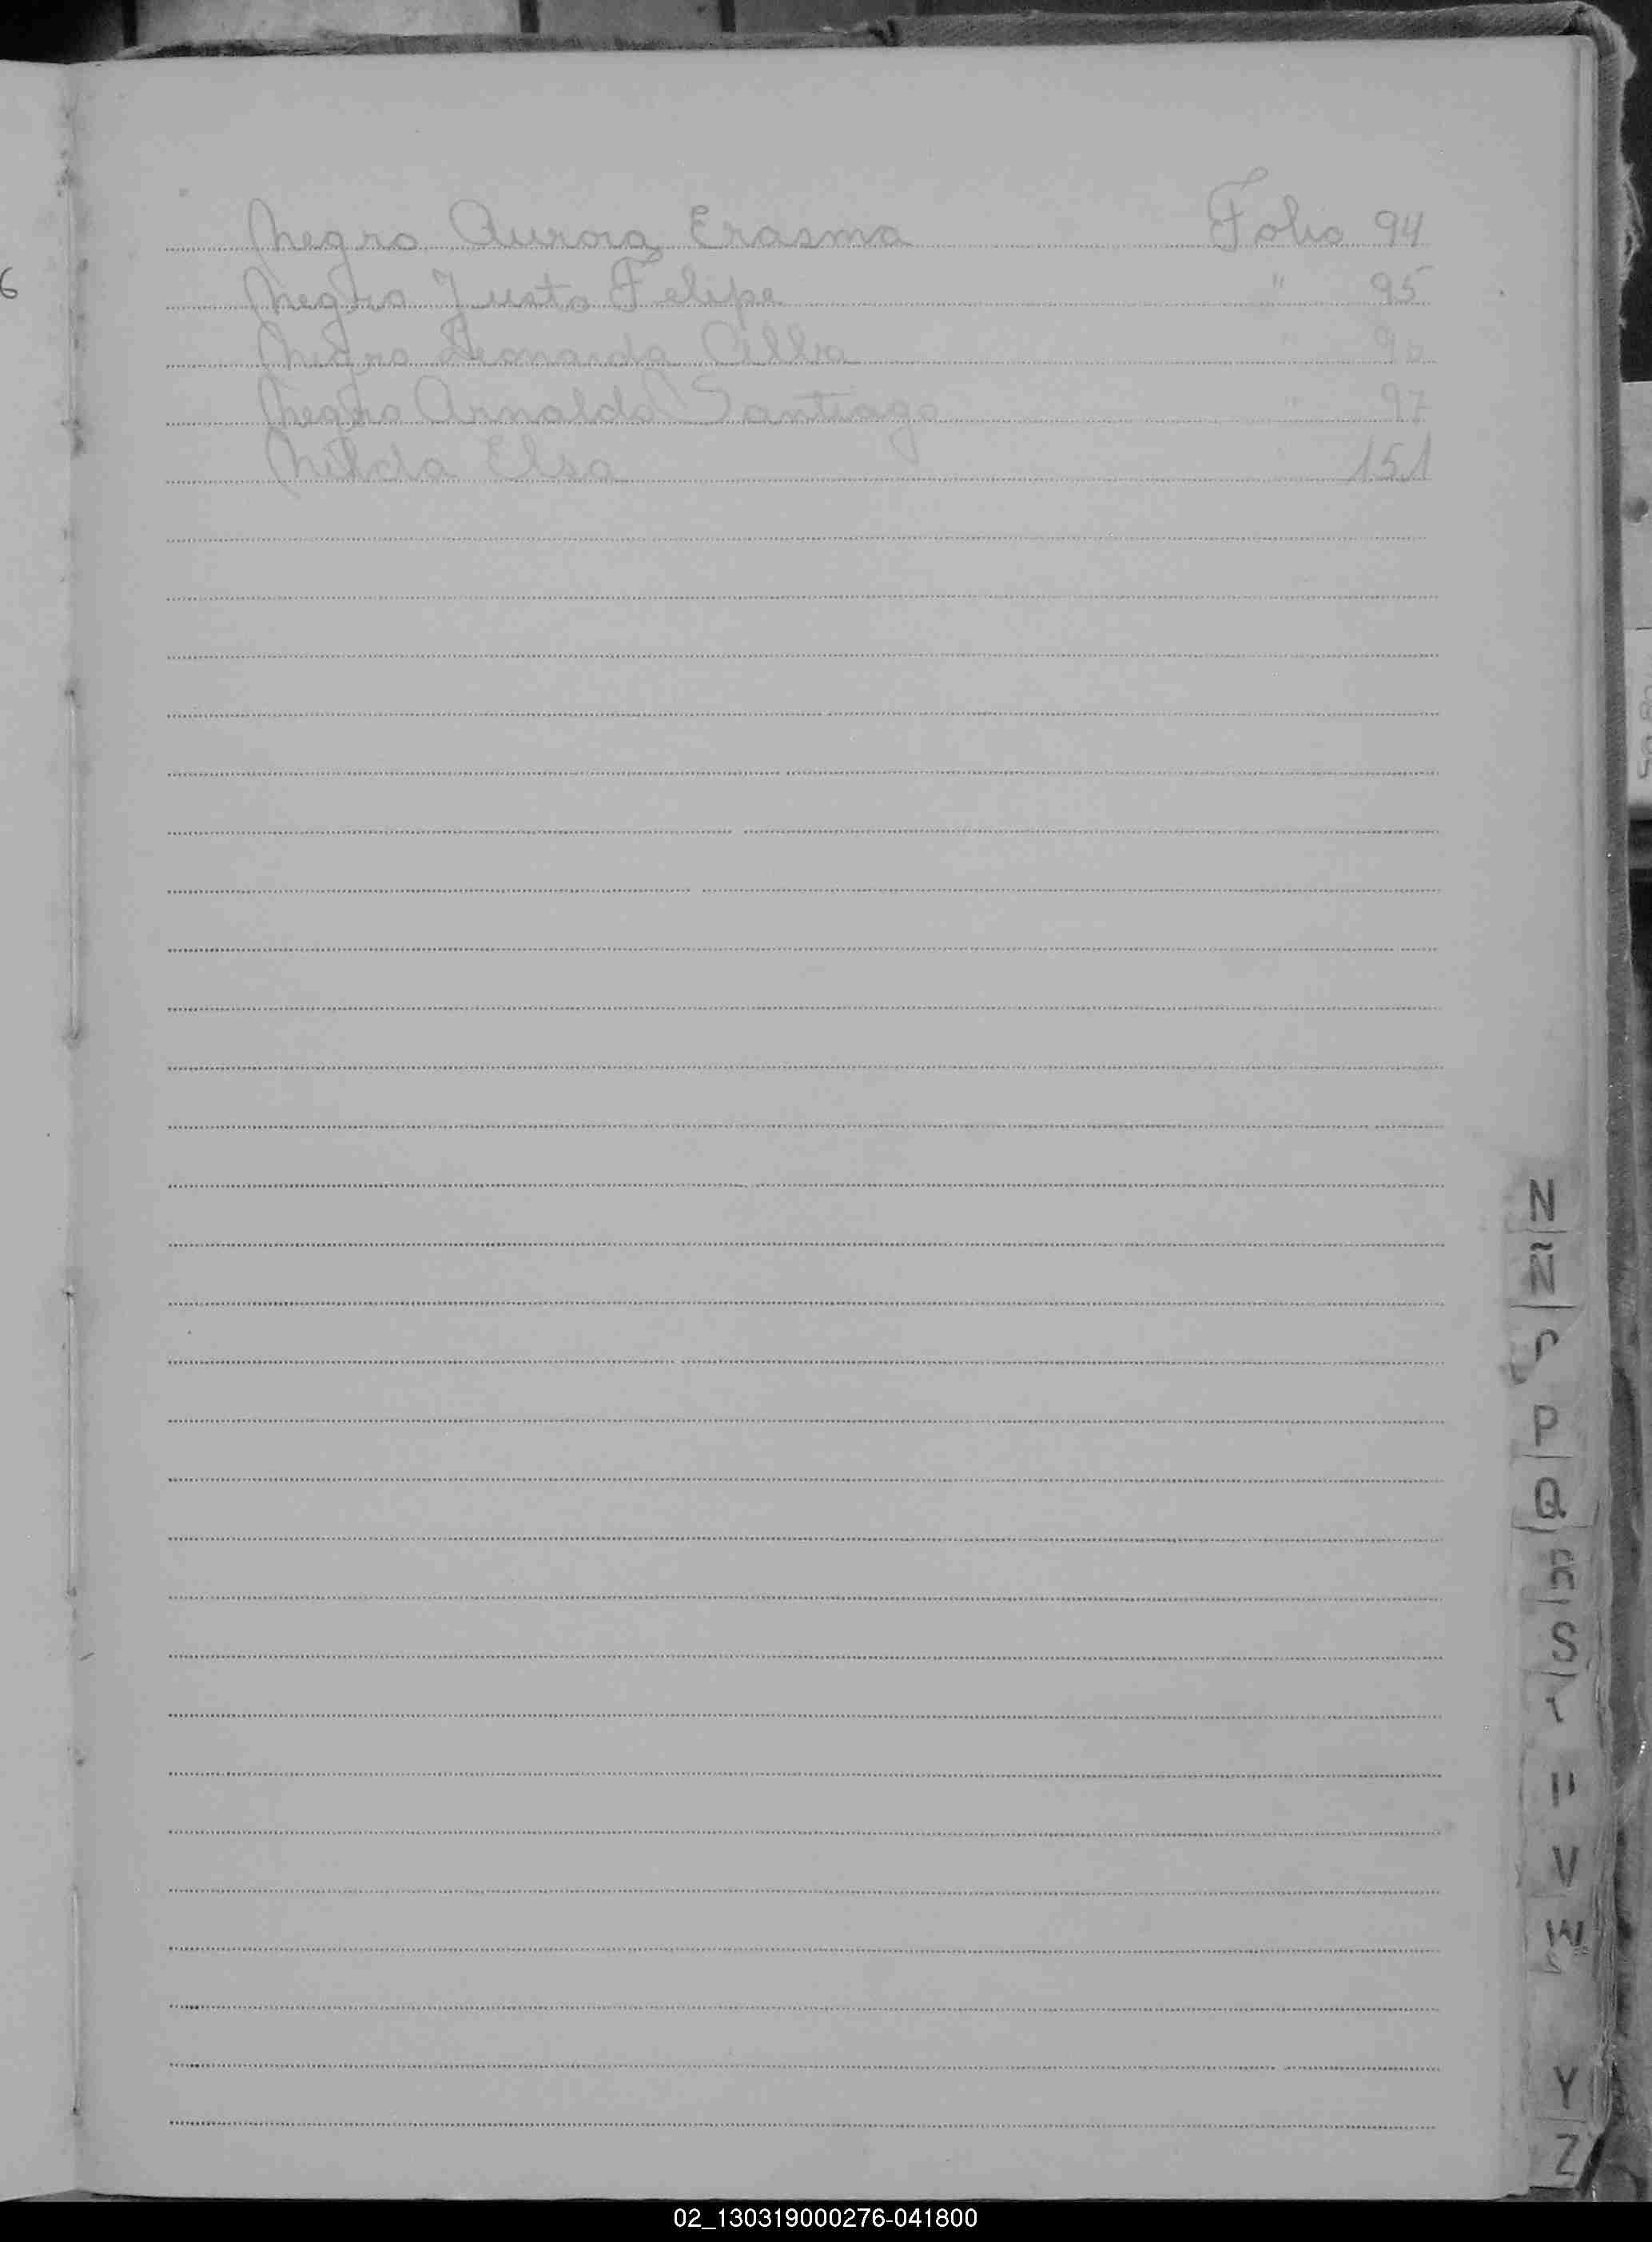 Negro Aurora Erasma Folio 94
Negro Justo Felipe " 95
Negro Leonardo " 96
Negro Arnaldo Santiago " 97
Nilda Elsa 151
6
N
Ñ
P
Q
R
S
V
W
Y
Z
02_130319000276-041800